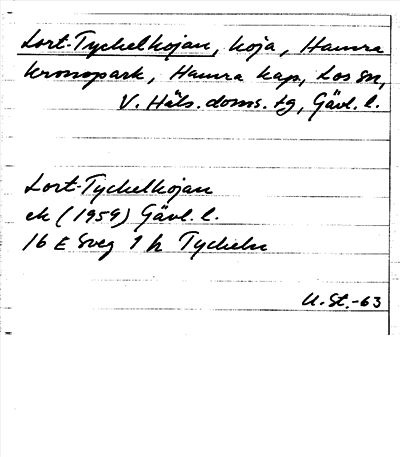 Lort-Tyckelkojan, koja, Hamra
kronopark, Hamra kap, Los sn,
V. Häls. doms. tg, Gävl. l.
Lort-Tyckelkojan
ek (1959) Gävl. l.
16 E Sveg 1 h Tyckeln
U. St.-63